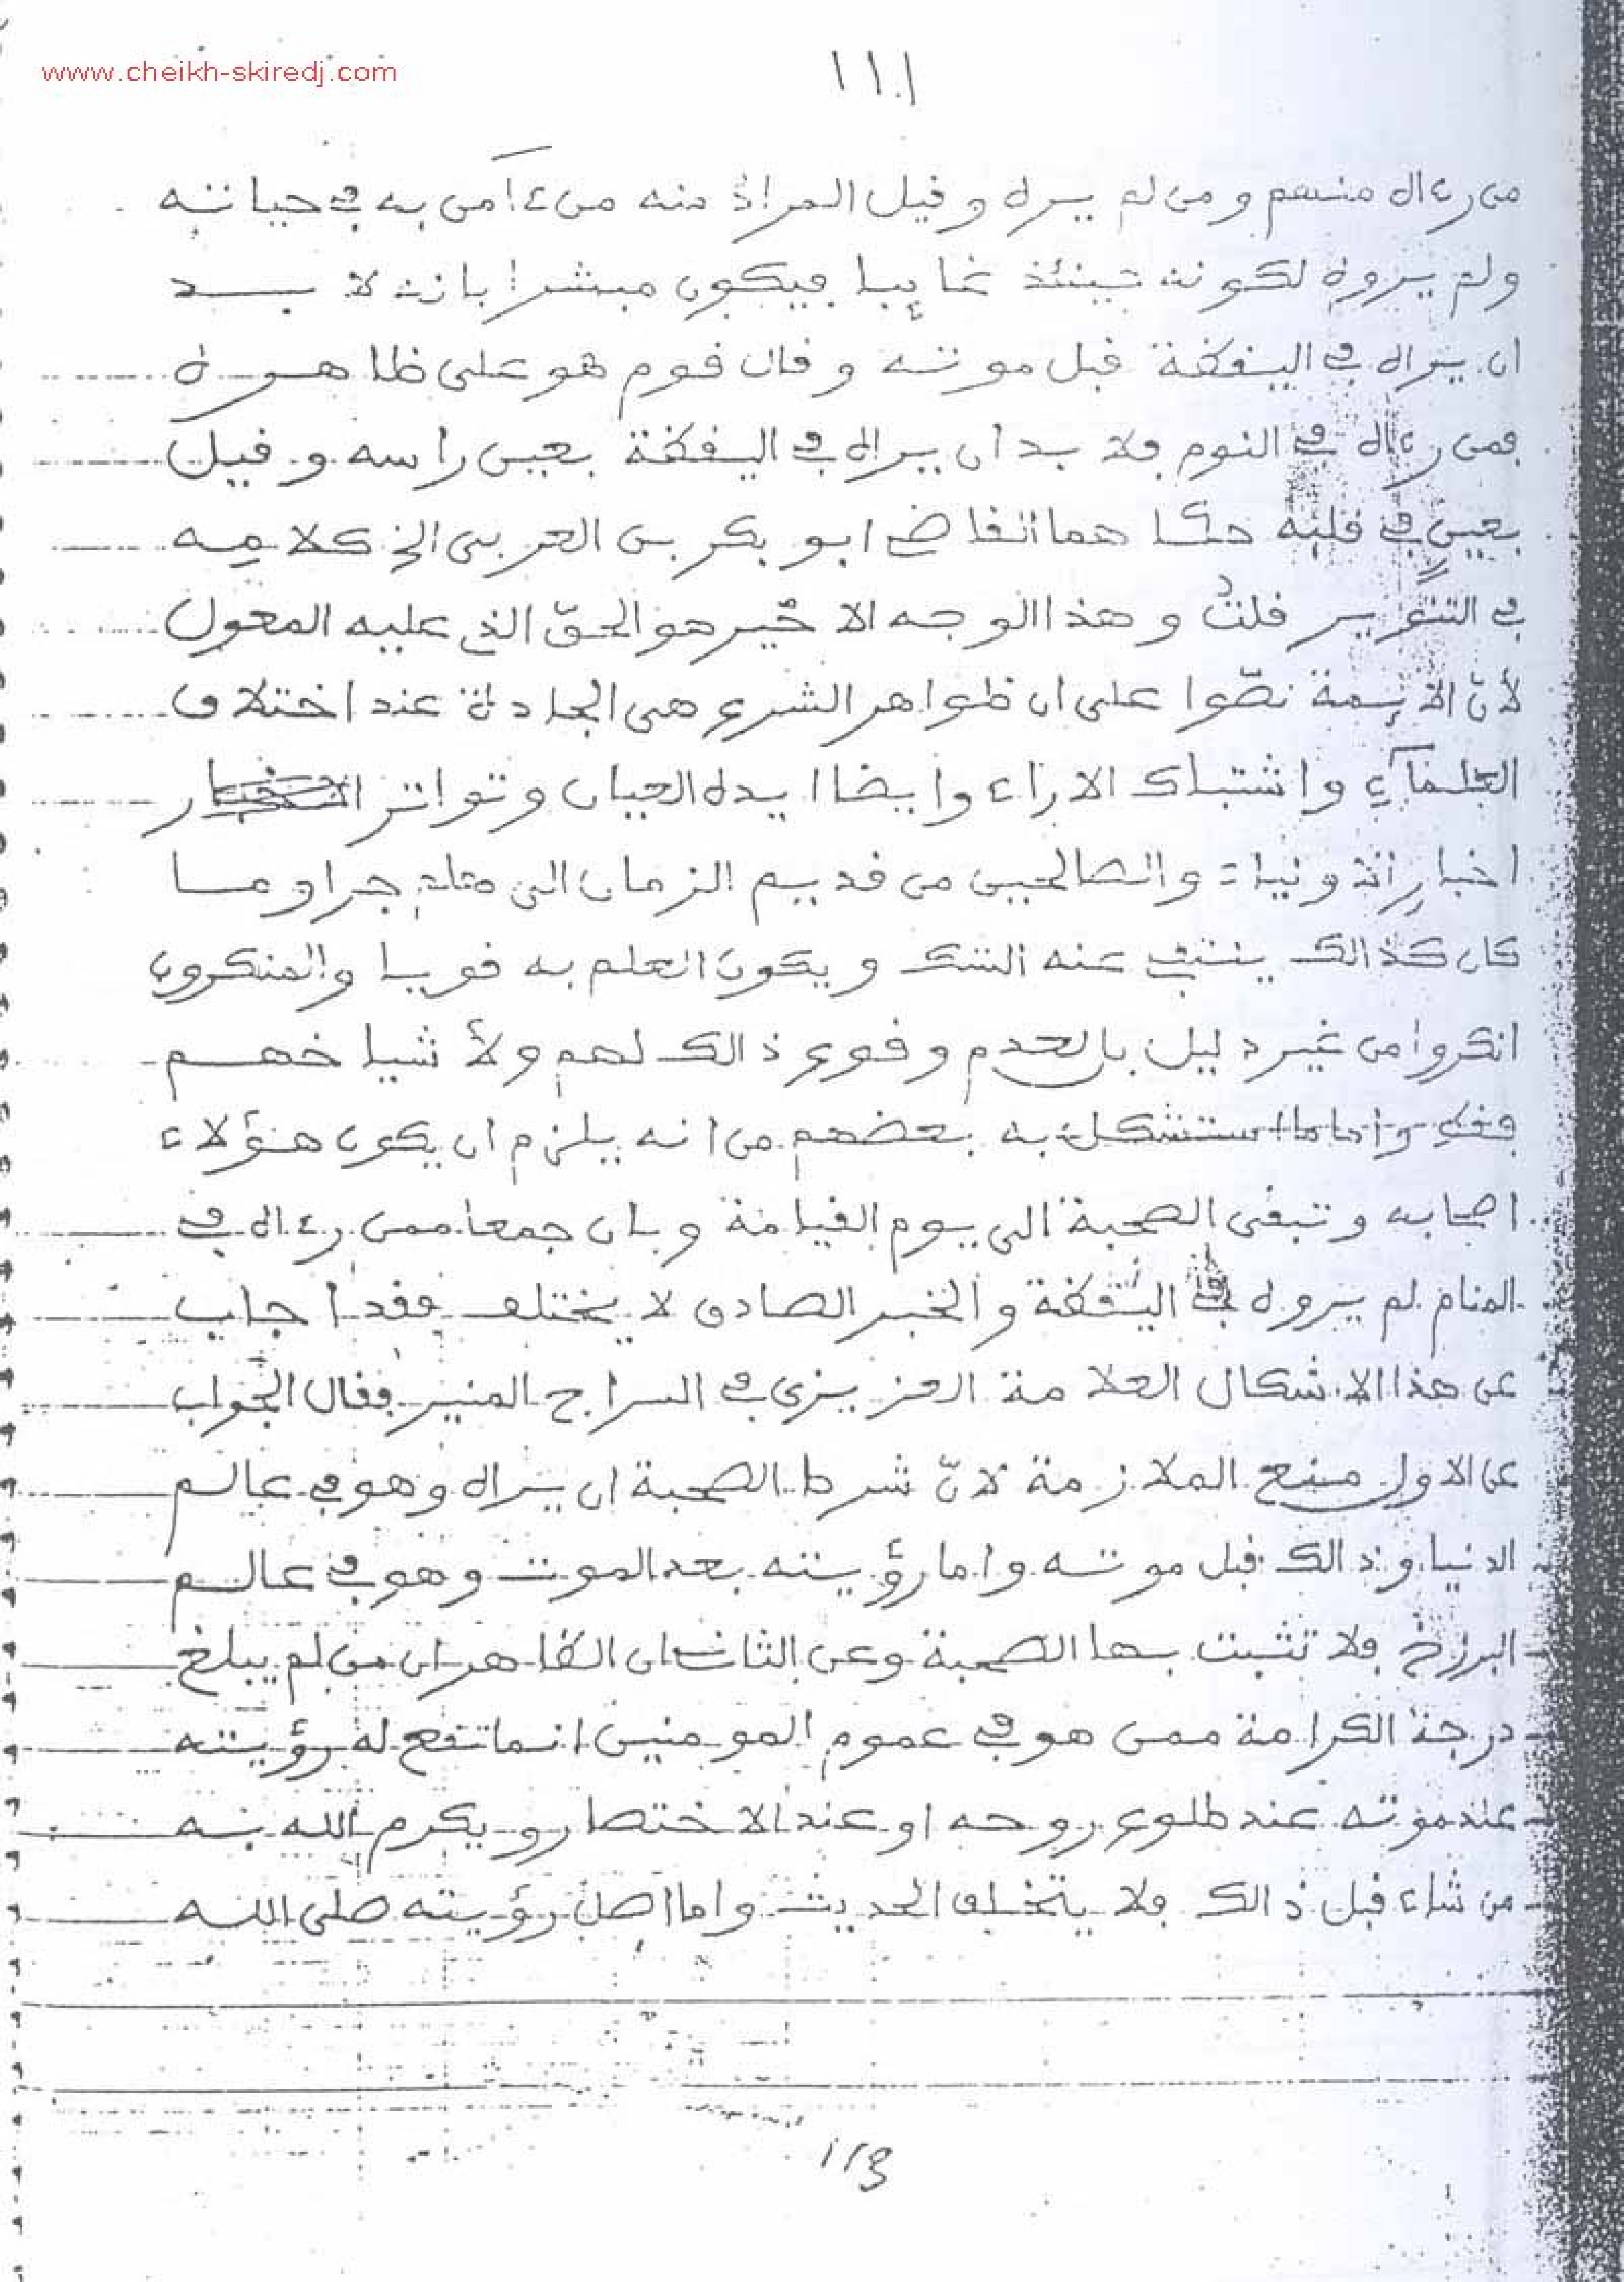 www.cheikh-skiredj.com
١١١
من رءاه منهم ومن لم يره وقيل المراد منه من ءآمن به في حياته
ولم يروه لكونه حينئذ غايبا فيكون مبشرا بانه لا بد
ان يراه في اليقظة قبل موته وقال قوم هو على ظاهره
فمن رءاه في النوم فلا بد ان يراه في اليقظة بعين راسه وقيل
بعين في قلبه حكا هما القاضي ابو بكر بن العربي الخ كلامه
في التنوير قلت وهذا الوجه الاخير هو الحقّ الذي عليه المعول
لأن الأيمة نصّوا على ان ظواهر الشرع هي الجادة عند اختلاف
العلمآء واشتباك الاراء وايضا ايده العيان وتواتر
اخبار والصالحين من قديم الزمان الى هلم جرا وما
كان كذالك ينتفي عنه الشك ويكون العلم به قويا والمنكرون
انكروا من غير دليل بل لعدم وقوع ذالك لهم ولأشياخهم
فقط واما ما استشكل به بعضهم من انه يلزم ان يكون هؤلاء
اصحابه وتبقى الصحبة الى يوم القيامة وبان جمعا ممن رءاه في
المنام لم يروه في اليقظة والخبر الصادق لا يختلف فقد اجاب
عن هذا الاشكال العلامة العزيزي في السراج المنير فقال الجواب
عن الاول منع الملازمة لانّ شرط الصحبة ان يراه وهو في عالم
الدنيا وذالك قبل موته واما رؤيته بعد الموت وهو في عالم
البرزخ فلا تثبت بها الصحبة وعن الثاني ان الظاهر ان من لم يبلغ
درجة الكرامة ممن هو في عموم المومنين انما تقع له رؤيته
عند موته عند طلوع روحه او عند الاحتضار ويكرم الله به
من شاء قبل ذالك فلا يتخلف الحديث واما اصل رؤيته صلى الله
113